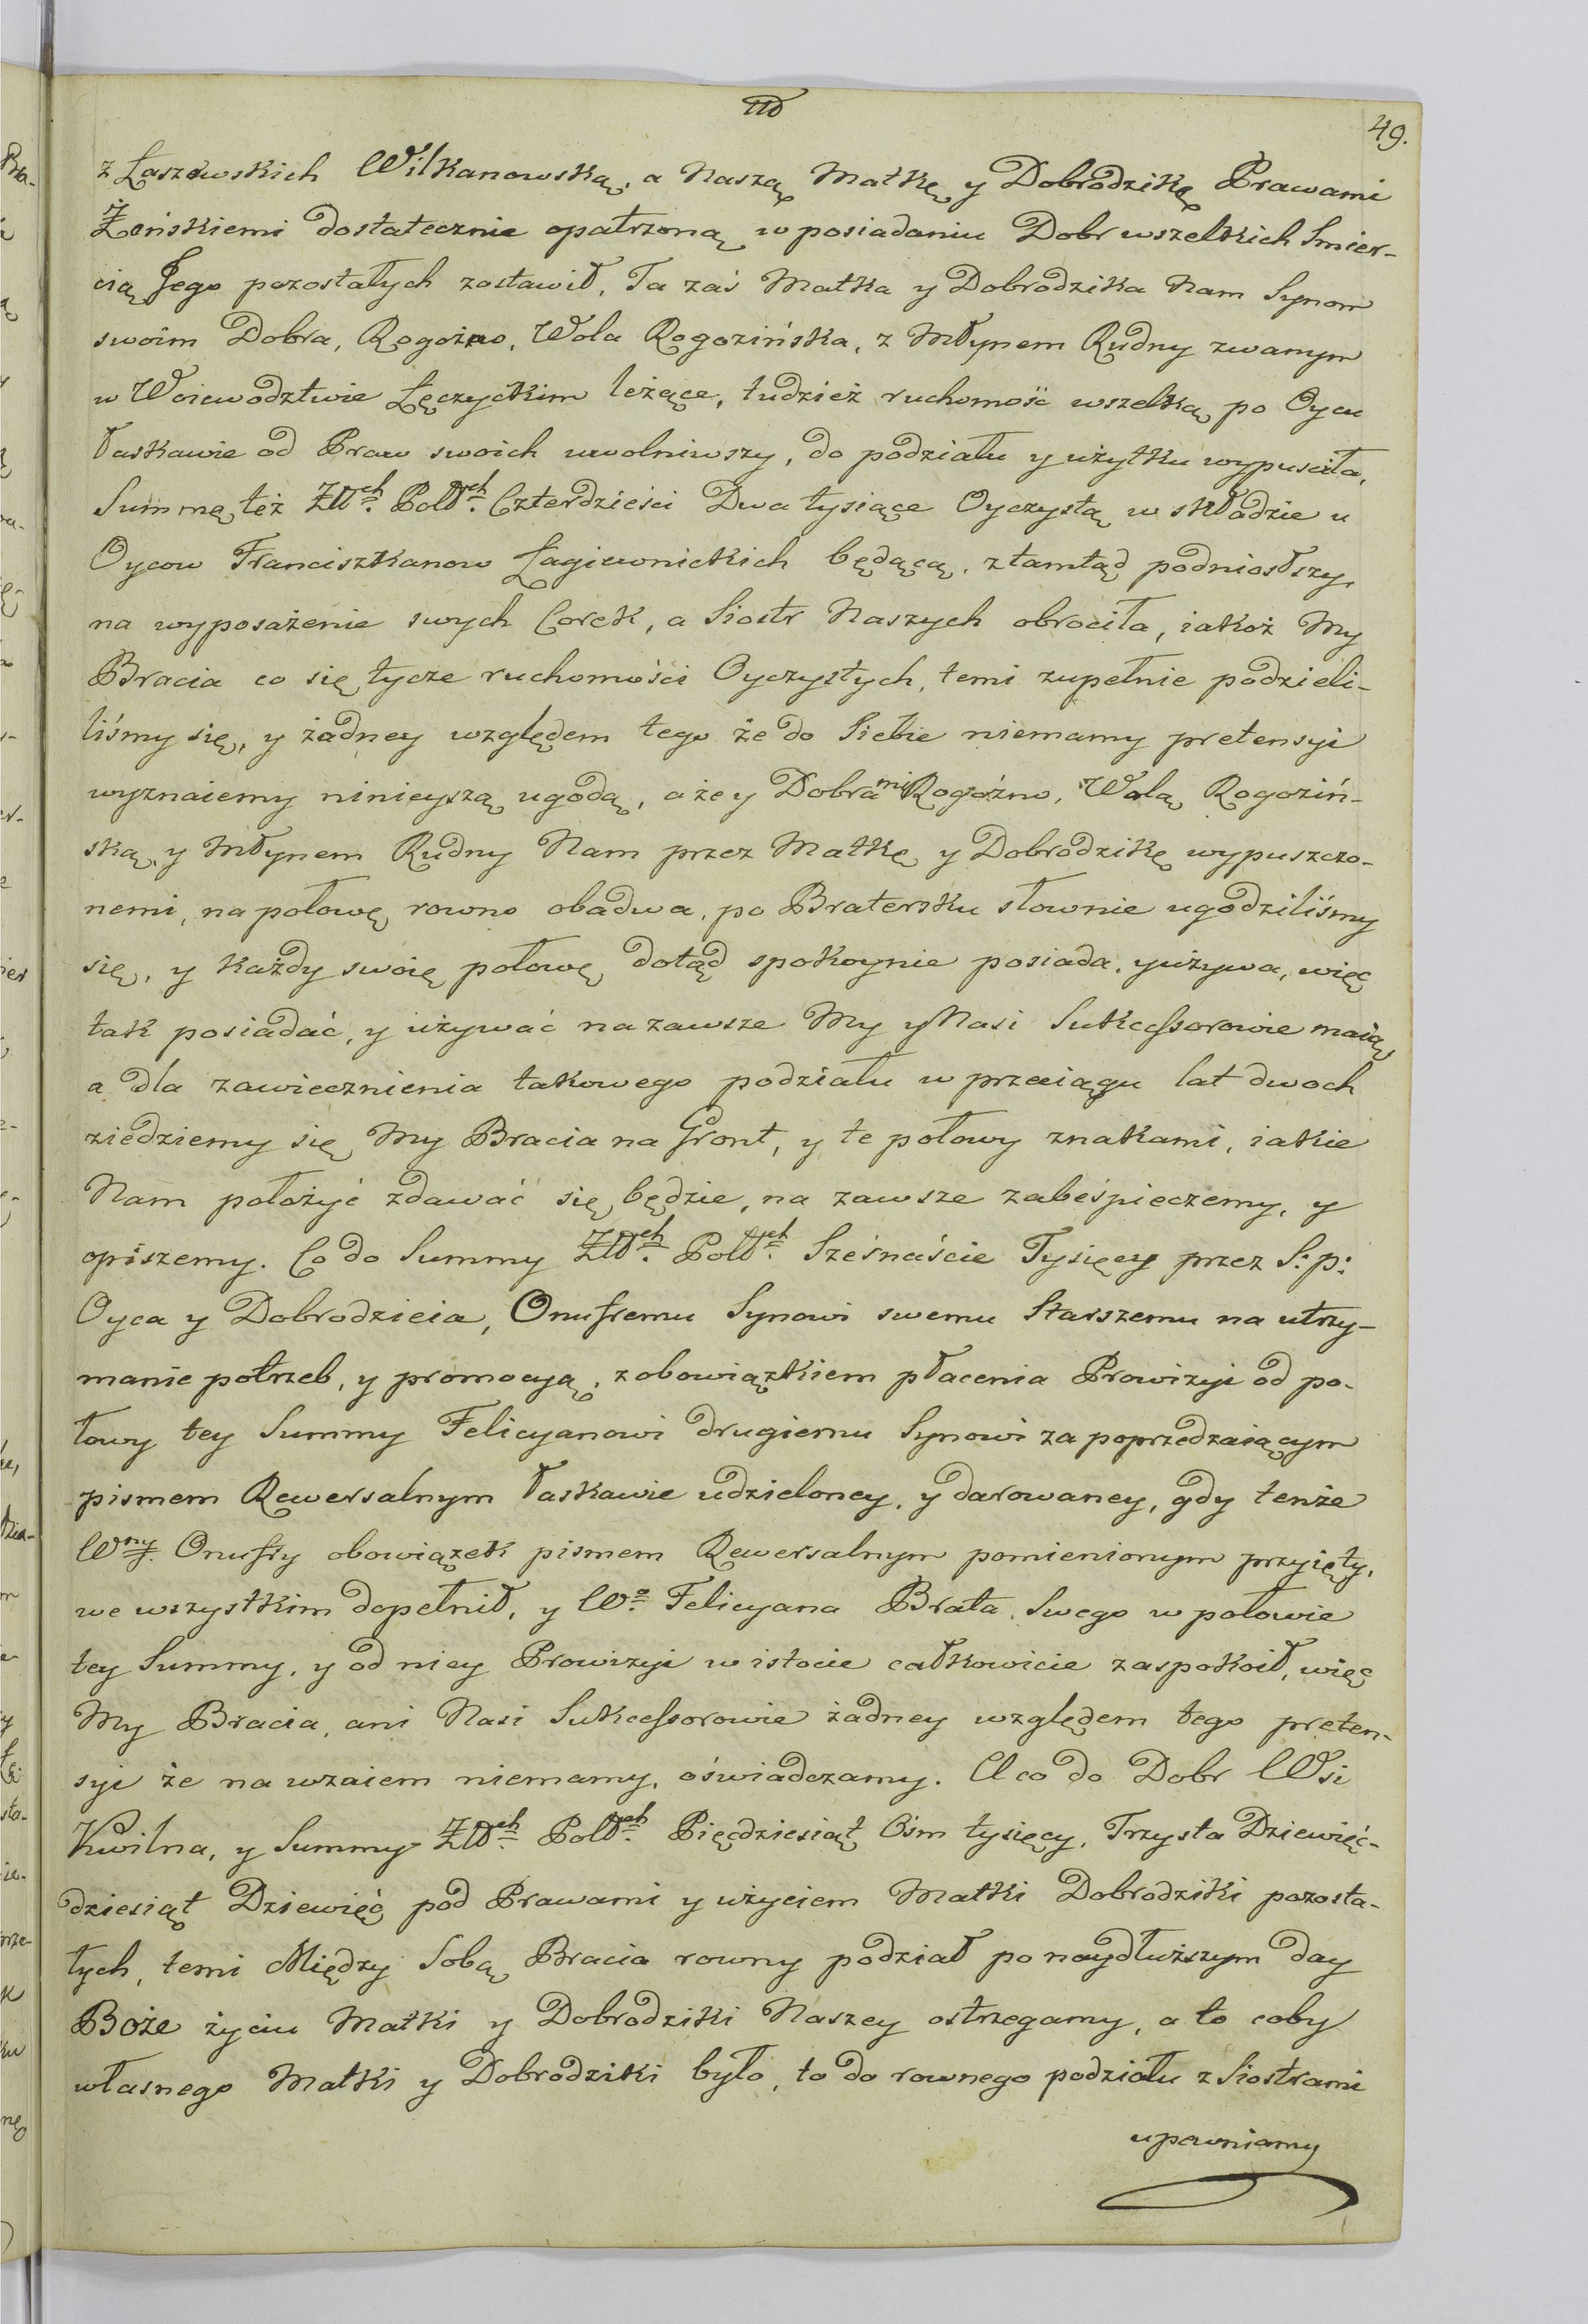 49.
z Łaszewskich Wilkanowską, a Naszą Matkę y Dobrodzikę Prawami
Żeńskiemi dostatecznie opatrzoną w posiadaniu Dobr wszelkich Smier-
cią Jego pozostałych zostawił, Ta zaś Matka y Dobrodzika Nam Synom
swoim Dobra, Rogoźno, Wola Rogozińska, z Młynem Rudny zwanym
w Woiewodztwie Łęczyckim leżące, tudzież ruchomość wszelką po Oycu
łaskawie od Praw swoich uwolniwszy, do podziału y użytku wypusciła,
Summę też Złłch Polłch Czterdzieści Dwa tysiące Oyczystą w składzie u
Oycow Franciszkanow Łagiewnickich będącą, ztamtąd podniosłszy,
na wyposażenie swych Corek, a Siostr Naszych obrociła, iakoż My
Bracia co się tycze ruchomości Oyczystych, temi zupełnie podzieli-
liśmy się, y żadney względem tego że do Siebie niemamy pretensyi
wyznaiemy ninieyszą ugodą, a że y Dobrami Rogoźno, Wolą Rogoziń-
ską, y Młynem Rudny Nam przez Matkę y Dobrodzikę wypuszczo-
nemi, na połowę rowno obadwa, po Bratersku słownie ugodziliśmy
się, y każdy swoię połowę dotąd spokoynie posiada, y używa, więc
tak posiadać, y używać na zawsze My y Nasi Sukcessorowie maią,
a dla zawiecznienia takowego podziału w przeciągu lat dwoch
ziedziemy się My Bracia na Gront, y te połowy znakami, iakie
Nam położyć zdawać się będzie, na zawsze zabeśpieczemy, y
opiszemy. Co do Summy Złłch Polłch Sześnaście Tysięcy przez S: p:
Oyca y Dobrodzieia, Onufremu Synowi swemu Starszemu na utrzy-
manie potrzeb, y promocyą, z obowiązkiem płacenia Prowizyi od po-
łowy tey Summy Felicyanowi drugiemu Synowi za poprzedzaiącym
pismem Rewersalnym łaskawie udzieloney, y darowaney, gdy tenże
Wny Onufry obowiązek pismem Rewersalnym pomienionym przyięty,
we wszystkim dopełnił, y Wo Felicyana Brata Swego w połowie
tey Summy, y od niey Prowizyi w istocie całkowicie zaspokoił, więc
My Bracia, ani Nasi Sukcessorowie żadney względem tego preten-
syi że na wzaiem niemamy, oświadczamy. A co do Dobr Wsi
Kwilna, y Summy Złłch Polłch Pięćdziesiąt Ośm tysięcy, Trzysta Dziewięć-
dziesiąt Dziewięć pod Prawami y użyciem Matki Dobrodziki pozosta-
łych, temi Między Sobą Bracia rowny podział po naydłuższym day
Boże życiu Matki y Dobrodziki Naszey ostrzegamy, a to coby
własnego Matki y Dobrodziki było, to do rownego podziału z Siostrami
upewniamy